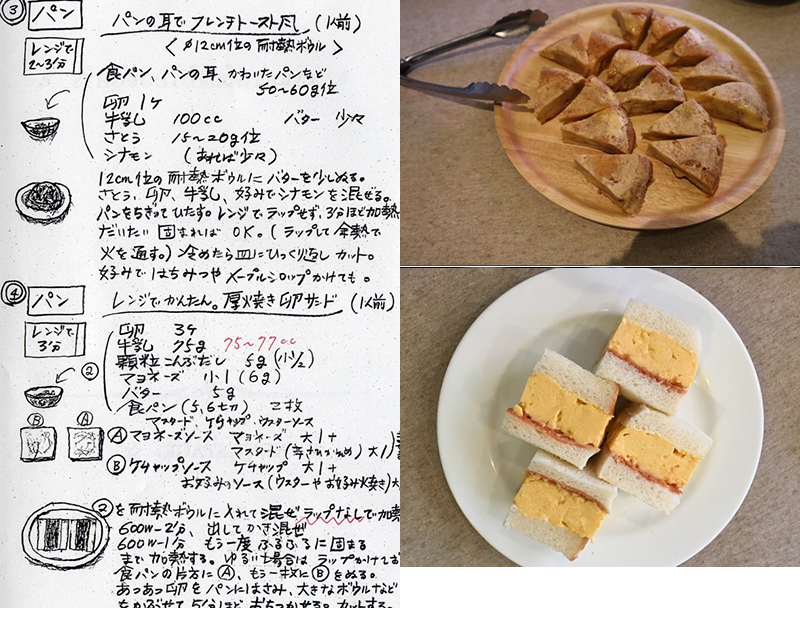 ③ パン パンの耳で フレンチトースト風 (1人前)
レンジで 2〜3分
< φ12cm位の耐熱ボウル >
食パン、パンの耳、かわいたパンなど
50〜60g位
卵 1ケ
牛乳 100cc バター 少々
さとう 15〜20g位
シナモン (あれば少々)
12cm位の耐熱ボウルにバターを少しぬる。
さとう、卵、牛乳、好みでシナモンを混ぜる。
パンをちぎってひたす。レンジで、ラップせず、3分ほど加熱
だいたい固まればOK。(ラップして余熱で
火を通す。) 冷めたら皿にひっくり返しカット。
好みではちみつやメープルシロップかけても。
④ パン レンジでかんたん。厚焼き卵サンド (1人前)
レンジで 3分
卵 3ケ
牛乳 75g 75〜77cc
顆粒こんぶだし 5g (小1/2)
マヨネーズ 小1 (6g)
バター 5g
食パン (5、6切) 2枚
マスタード、ケチャップ、ウスターソース
Ⓐ マヨネーズソース マヨネーズ 大1+
マスタード (辛さひかえめ) 大1
Ⓑ ケチャップソース ケチャップ 大1+
お好みのソース (ウスターやお好み焼き) 大
②を耐熱ボウルに入れて混ぜラップなしで加熱
600W-2分、出してかき混ぜ
600W-1分 もう一度 ふるふるに固まる
まで加熱する。ゆるい場合は ラップかけてお
食パンの片方にⒶ、もう一枚にⒷをぬる。
あつあつ卵をパンにはさみ、大きなボウルなど
をかぶせて 5分ほど おちつかせる。カットする。